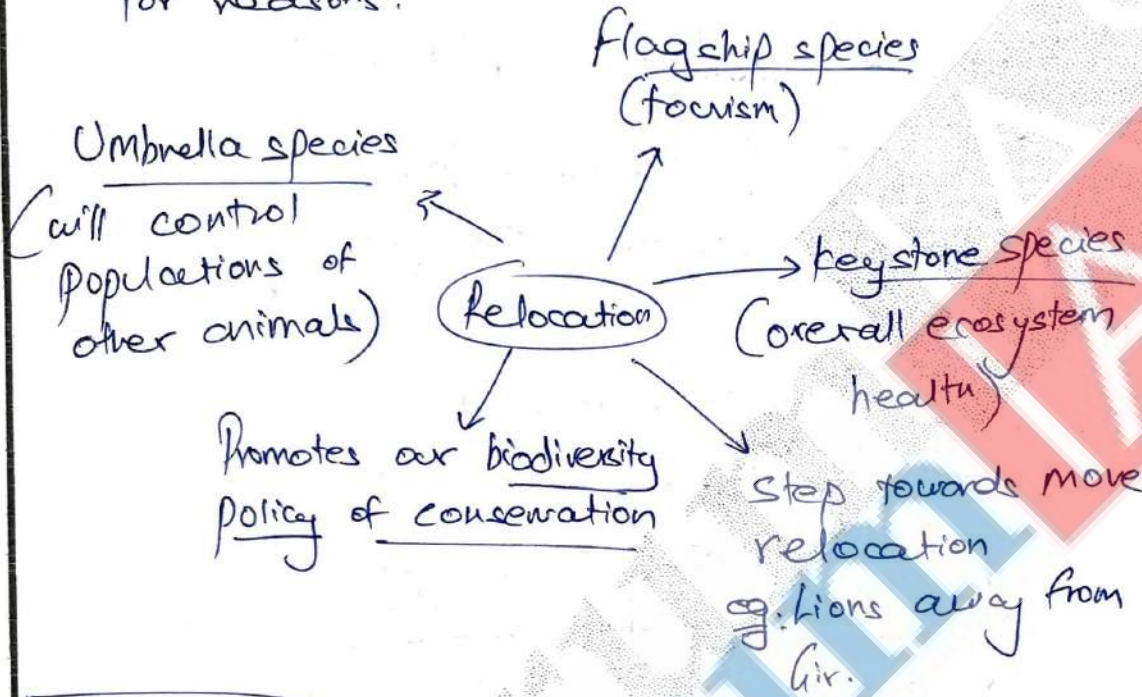 for reasons.
Flagship species
(tourism)
Umbrella species
(will control
populations of
other animals)
Relocation
keystone species
(overall ecosystem
health)
Promotes our biodiversity
policy of conservation
Step towards more
relocation
eg. Lions away from
Gir.